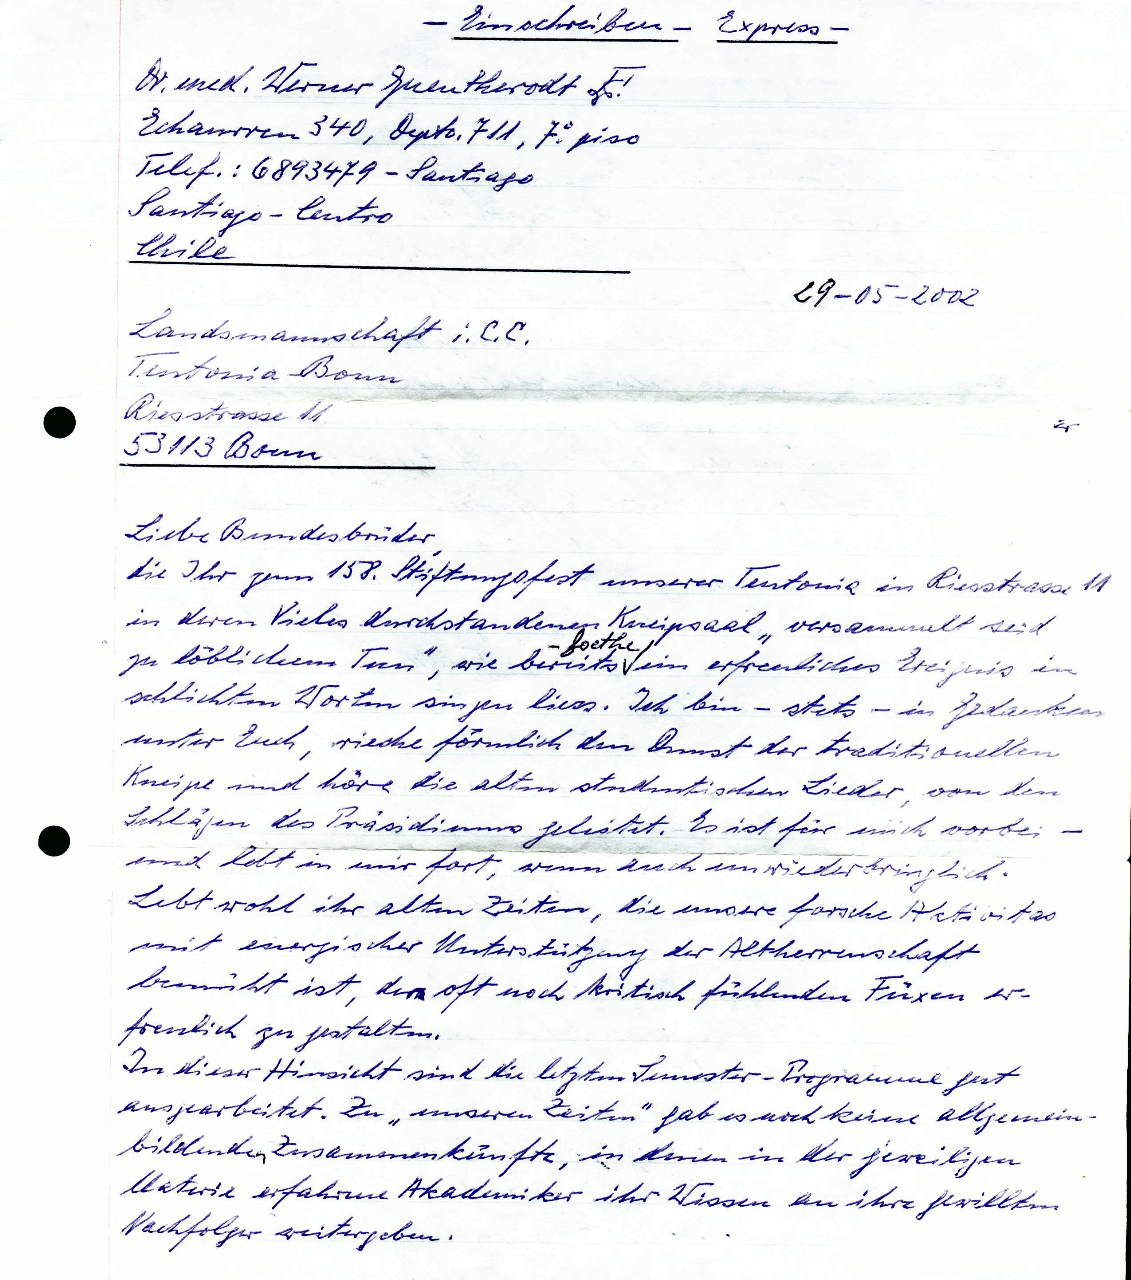 — Einschreiben — Express —
Dr. med. Werner Guentherodt
Echaurren 340, Depto. 711, 7.º piso
Telef.: 6893479 - Santiago
Santiago - Centro
Chile
29-05-2002
Landsmannschaft i. C.C.
Teutonia Bonn
Riesstrasse 11
53113 Bonn
Liebe Bundesbrüder,
die Ihr zum 158. Stiftungsfest unserer Teutonia in Riesstrasse 11
in deren Vieles durchstandenen Kneipsaal „versammelt seid
zu löblichem Tun", wie bereits -Goethe/ ein erfreuliches Ereignis in
schlichten Worten singen liess. Ich bin - stets - in Gedanken
unter Euch, rieche förmlich den Dunst der traditionellen
Kneipe und höre die alten studentischen Lieder, von den
Schlägen des Präsidiums geleitet. Es ist für mich vorbei -
und lebt in mir fort, wenn auch unwiederbringlich.
Lebt wohl ihr alten Zeiten, die unsere forsche Aktivitas
mit energischer Unterstützung der Altherrenschaft
bemüht ist, den oft noch kritisch fühlenden Füxen er-
freulich zu gestalten.
In dieser Hinsicht sind die letzten Semester-Programme gut
ausgearbeitet. Zu „unseren Zeiten" gab es noch keine allgemein-
bildenden Zusammenkünfte, in denen in der jeweiligen
Materie erfahrene Akademiker ihr Wissen an ihre gewillten
Nachfolger weitergeben.